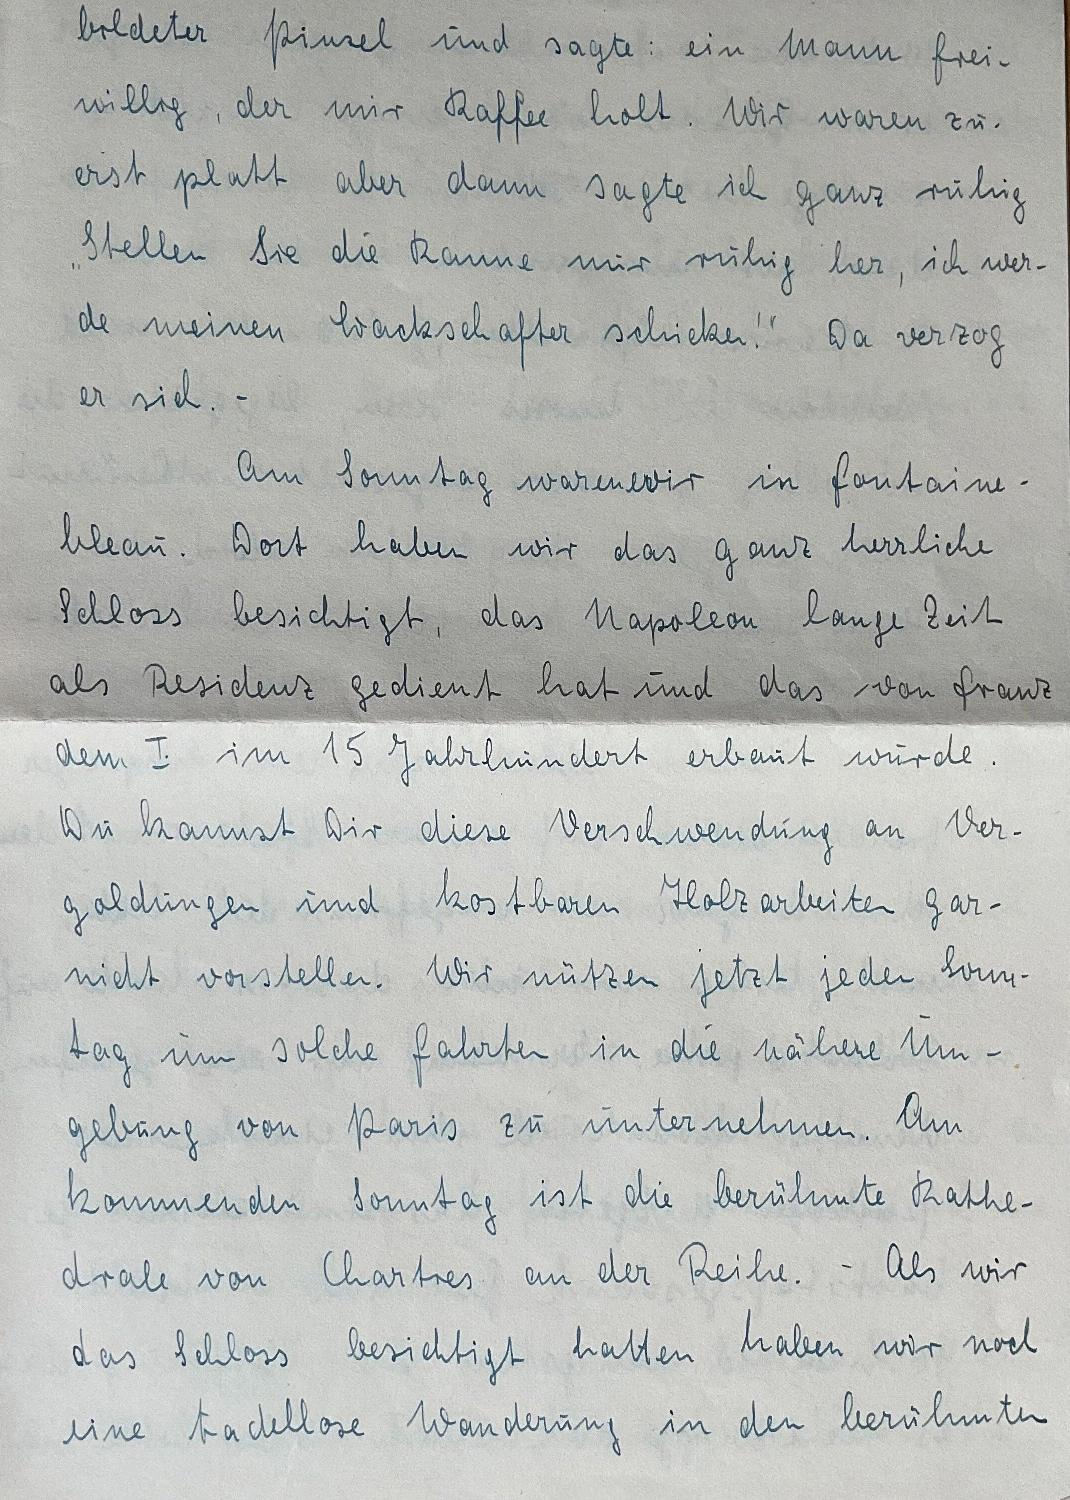 bildeter Pinsel und sagte: ein Mann frei-
willig, der mir Kaffee holt. Wir waren zu-
erst platt aber dann sagte ich ganz ruhig
„Stellen Sie die Kanne nur ruhig her, ich wer-
de meinen schicken!" Da verzog
er sich. -
Am Sonntag waren wir in Fontaine-
bleau. Dort haben wir das ganz herrliche
Schloss besichtigt, das Napoleon lange Zeit
als Residenz gedient hat und das von Franz
dem I. im 15 Jahrhundert erbaut wurde.
Du kannst Dir diese Verschwendung an Ver-
goldungen und kostbaren Holzarbeiten gar-
nicht vorstellen. Wir nützen jetzt jeden Sonn-
tag um solche Fahrten in die nähere Um-
gebung von Paris zu unternehmen. Am
kommenden Sonntag ist die berühmte Kathe-
drale von Chartres an der Reihe. - Als wir
das Schloss besichtigt hatten haben wir noch
eine tadellose Wanderung in den berühmten